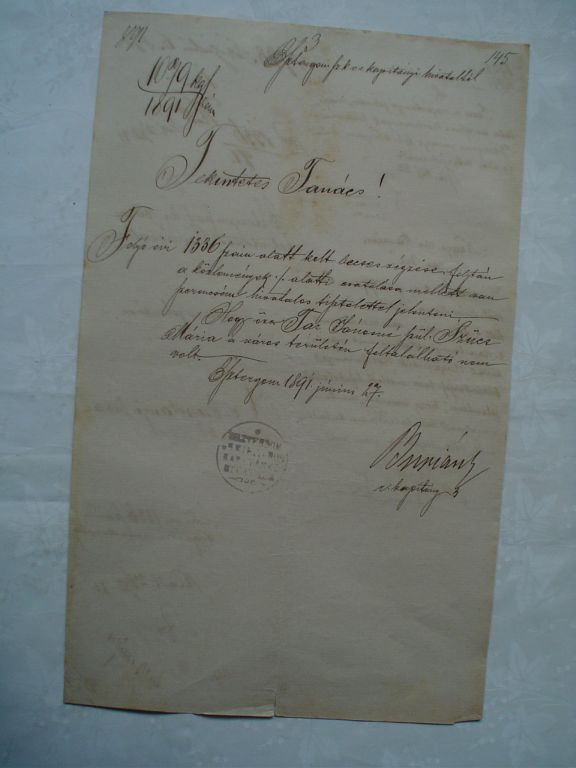 3
145
Esztergom sz. k. v. kapitányi hivataltól
1079 kgy
1891 szám
Tekintetes Tanács!
Folyó évi 1336 szám alatt kelt becses végzése folytán
a közlemények ·/. alatti csatolása mellett van
szerencsém hivatalos tisztelettel jelenteni,
Hogy özv. Jánosné szül. Szűcs
Mária a város területén feltalálható nem
volt.
Esztergom 1891. június 27.
v. kapitány